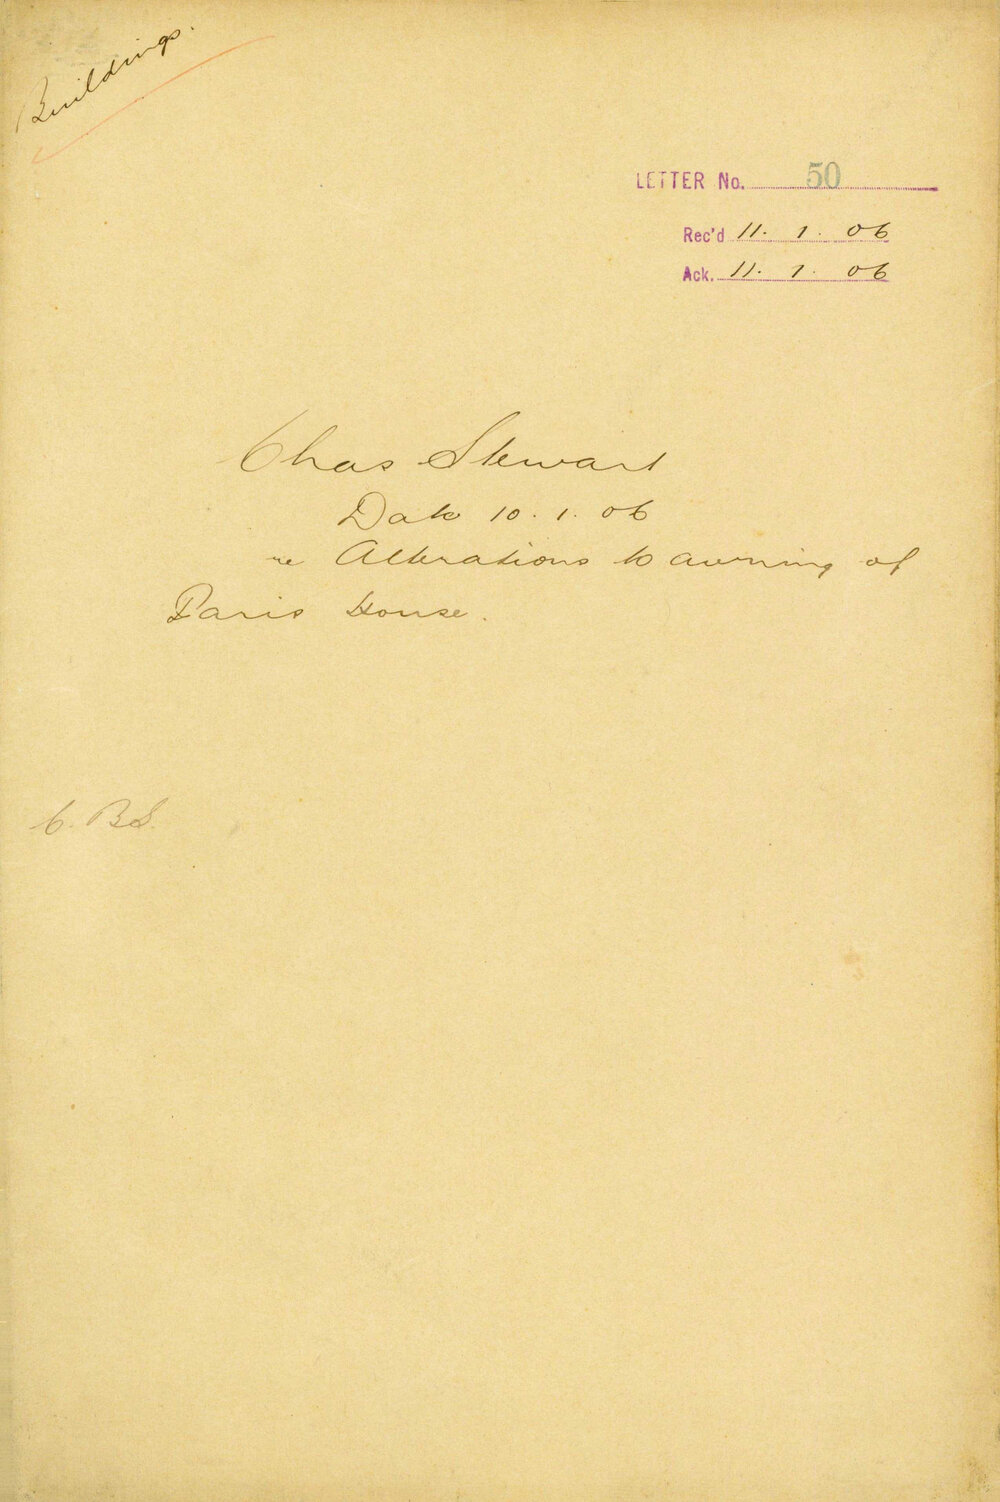 Buildings.
LETTER No. 50
Rec'd 11. 1. 06
Ack. 11. 1. 06
Chas Stewart
Date 10. 1. 06
re Alterations to awning of
Paris House.
C. B S.